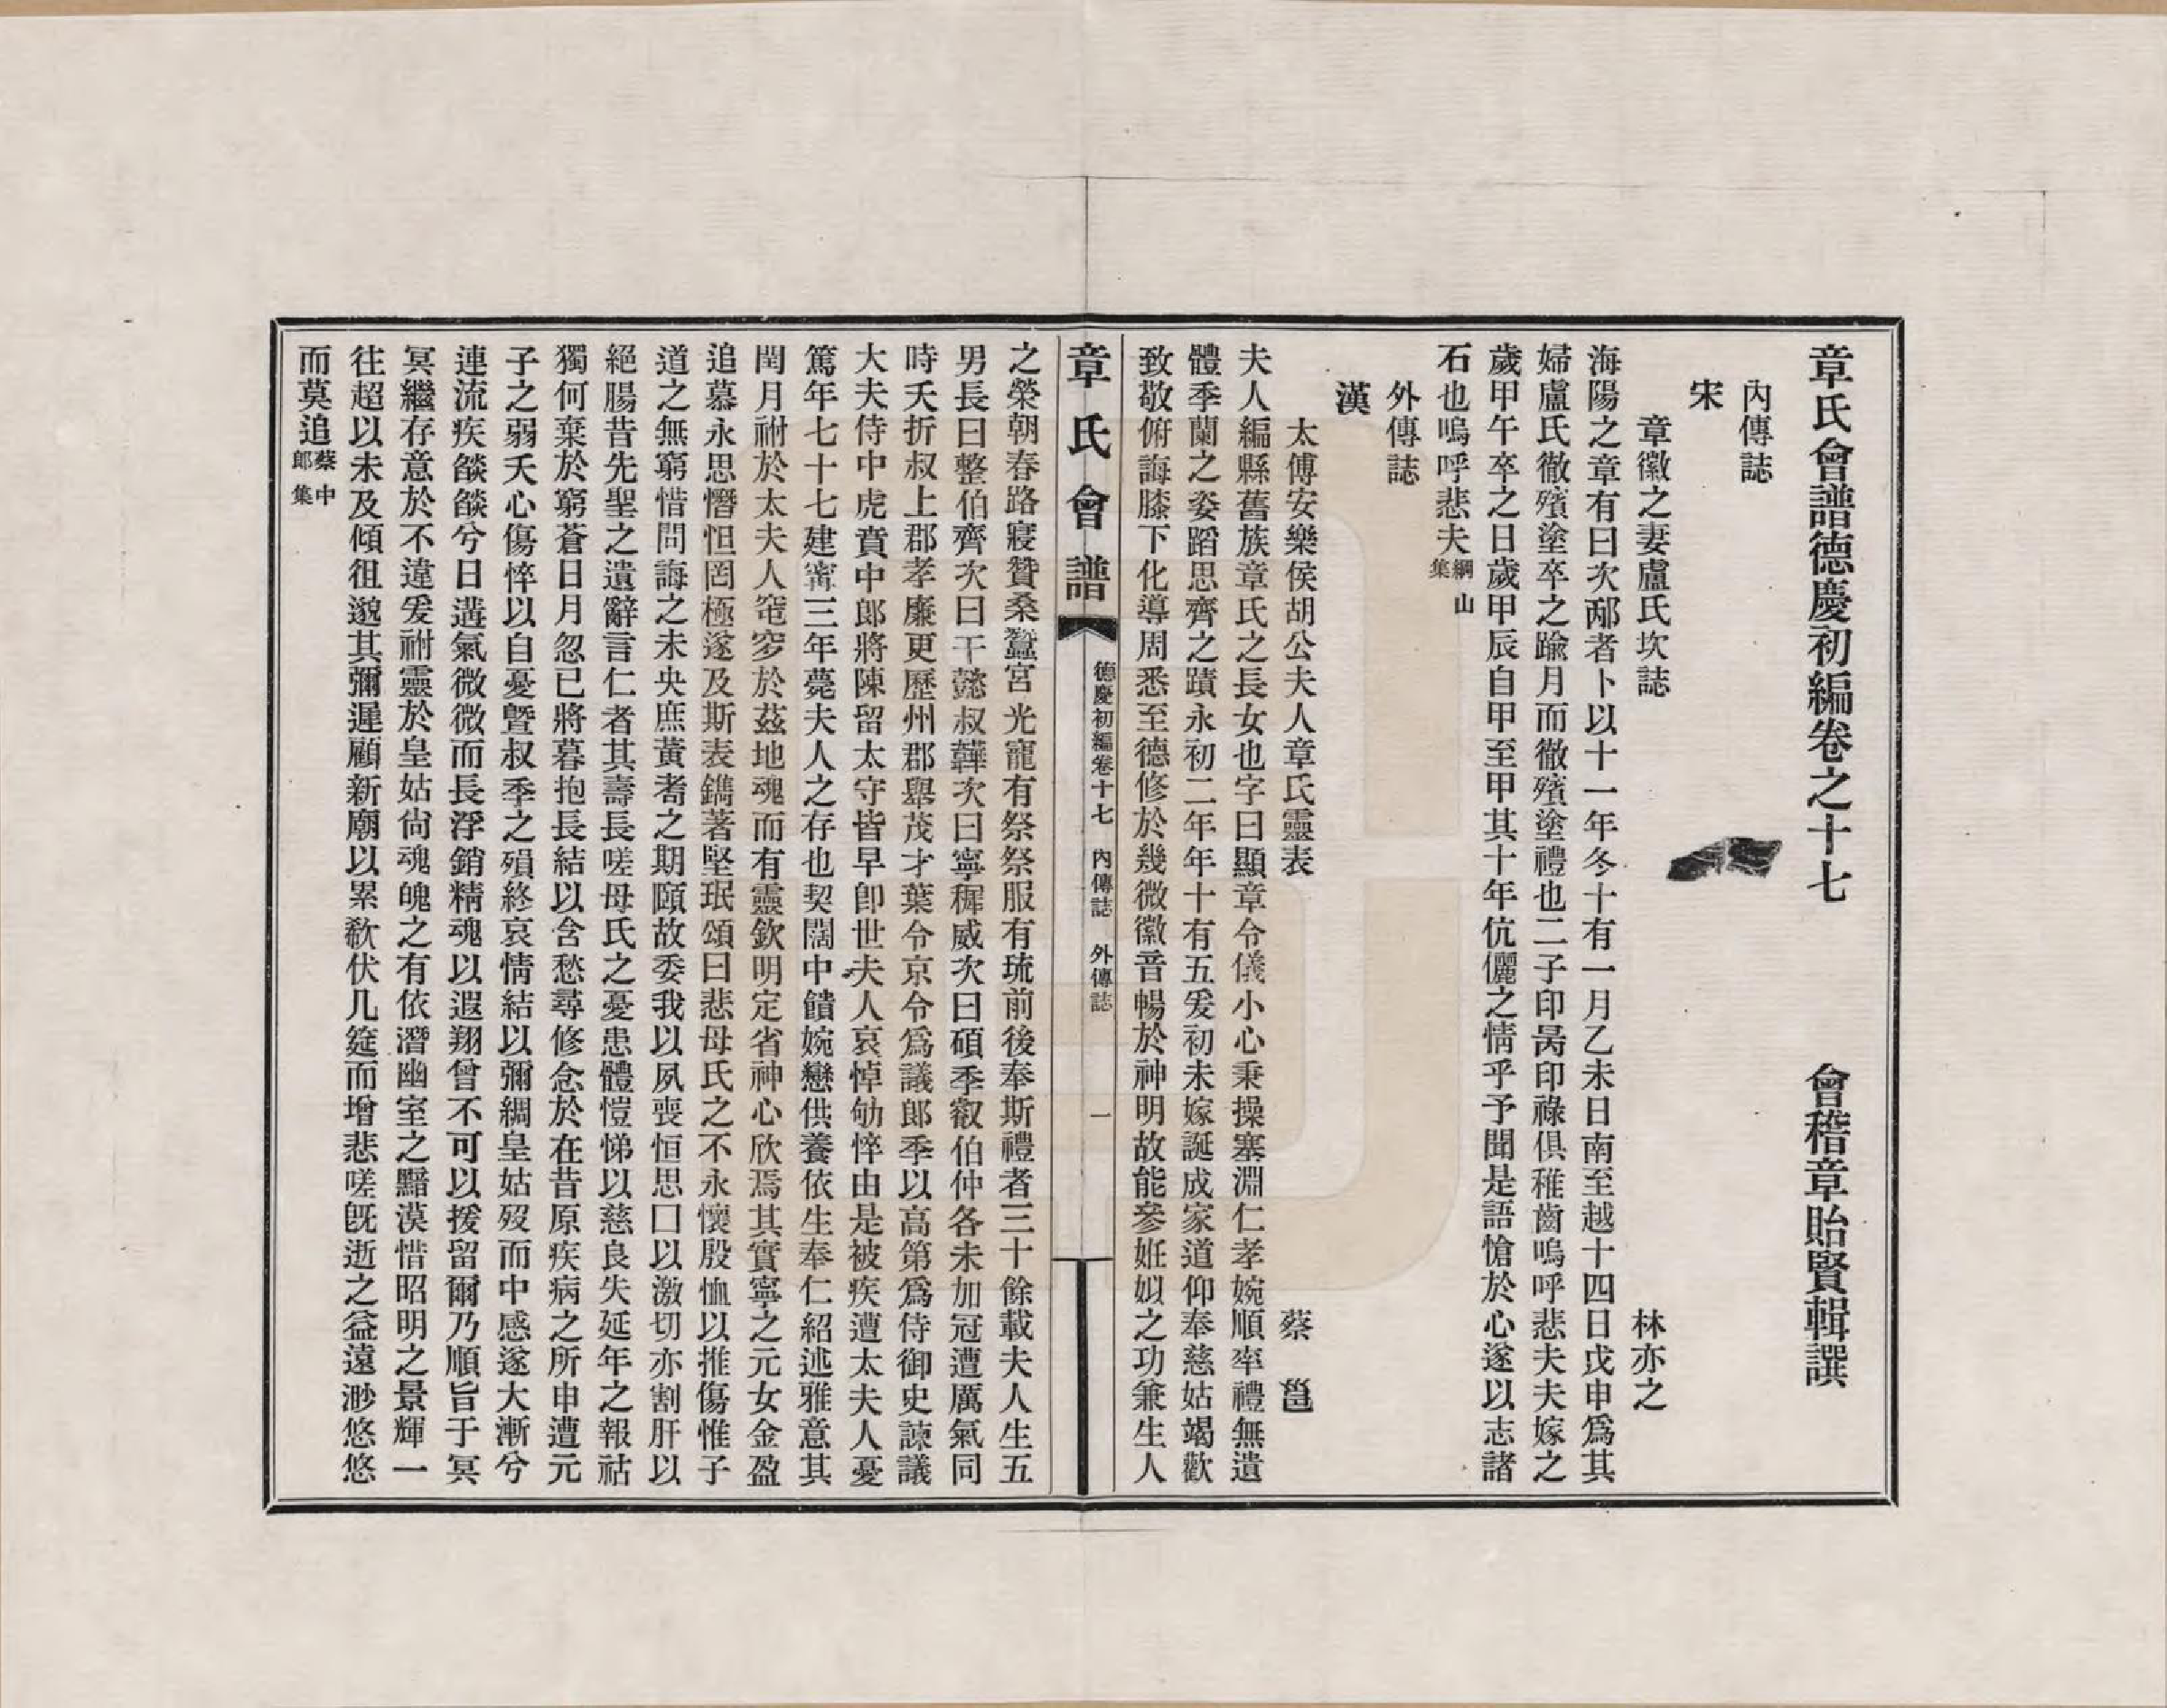 章氏會譜德慶初編卷之十七　會稽章貽賢輯譔
內傳誌
宋
章徽之妻盧氏坎誌　林亦之
海陽之章有曰次郕者卜以十一年冬十有一月乙未日南至越十四日戊申爲其
婦盧氏徹殯塗卒之踰月而徹殯塗禮也二子印昺印祿俱稚齒嗚呼悲夫夫嫁之
歲甲午卒之日歲甲辰自甲至甲其十年伉儷之情乎予聞是語愴於心遂以志諸
石也嗚呼悲夫綱山集
外傳誌
漢
太傅安樂侯胡公夫人章氏靈表　蔡邕
夫人編縣舊族章氏之長女也字曰顯章令儀小心秉操塞淵仁孝婉順率禮無遺
體季蘭之姿蹈思齊之蹟永初二年年十有五爰初來嫁誕成家道仰奉慈姑竭歡
致敬俯誨膝下化導周悉至德修於幾微徽音暢於神明故能參姙姒之功兼生人
章氏會譜　德慶初編卷十七　內傳誌　外傳誌　一
之榮朝春路寢贊桑蠶宮光寵有祭祭服有琉前後奉斯禮者三十餘載夫人生五
男長曰整伯齊次曰千懿叔韡次曰寧穉威次曰碩季叡伯仲各未加冠遭厲氣同
時夭折叔上郡孝廉更歷州郡舉茂才葉令京令爲議郎季以高第爲侍御史諫議
大夫侍中虎賁中郎將陳留太守皆早卽世夫人哀悼劬悴由是被疾遭太夫人憂
篤年七十七建寧三年薨夫人之存也契闊中饋婉戀供養依生奉仁紹述雅意其
閏月祔於太夫人窀穸於茲地魂而有靈欽明定省神心欣焉其實寧之元女金盈
追慕永思慘怛罔極遂及斯表鐫著堅珉頌曰悲母氏之不永懷殷恤以摧傷惟子
道之無窮惜問誨之未央庶黃耇之期頤故委我以夙喪恒思囗以激切亦割肝以
絕腸昔先聖之遺辭言仁者其壽長嗟母氏之憂患體愷悌以慈良失延年之報祜
獨何棄於窮蒼日月忽已將暮抱長結以含愁尋修念於在昔原疾病之所申遭元
子之弱夭心傷悴以自憂曁叔季之殞終哀情結以彌綢皇姑歿而中感遂大漸兮
連流疾燄燄兮日遘氣微微而長浮銷精魂以遐翔曾不可以援留爾乃順旨于冥
冥繼存意於不違爰祔靈於皇姑尙魂魄之有依潛幽室之黯漠惜昭明之景輝一
往超以未及傾徂邈其彌遲顧新廟以累欷伏几筵而增悲嗟旣逝之益遠渺悠悠
而莫追蔡中郎集